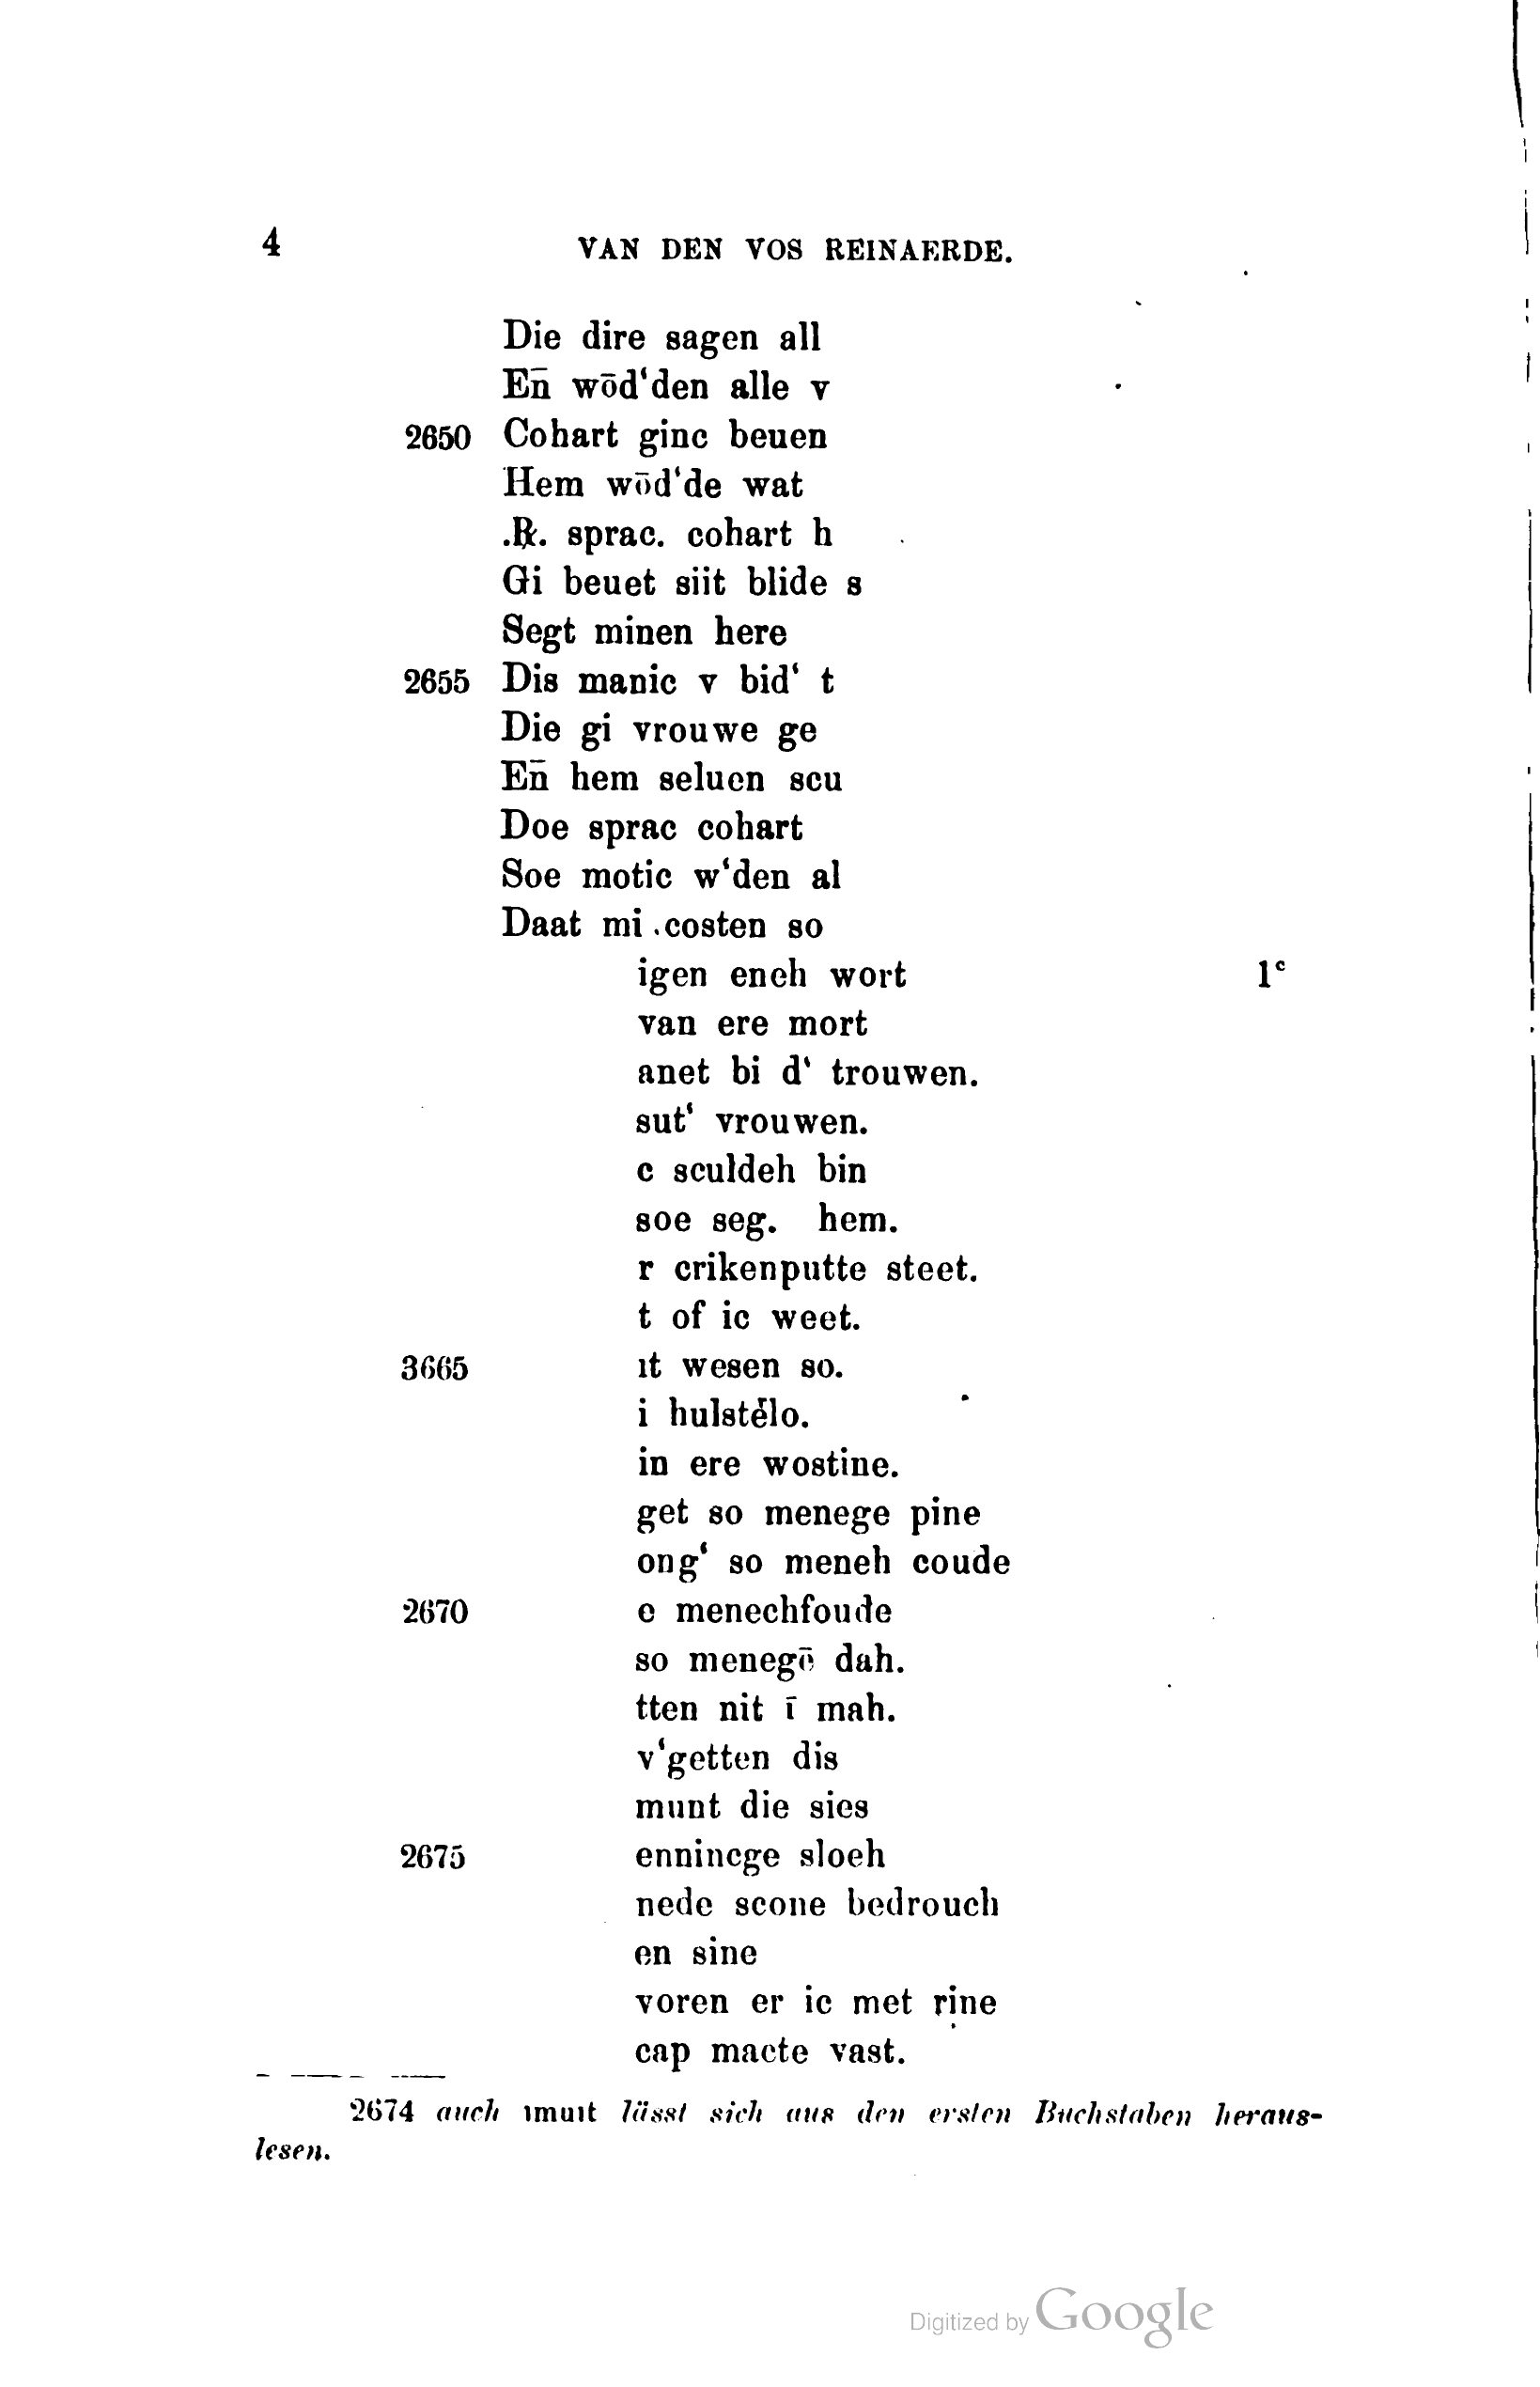 4 VAN DEN VOS REINAERDE.
Die dire sagen all
En̄ wōd‘den alle v
2650 Cohart ginc beuen
Hem wōd‘de wat
.R. sprac. cohart h
Gi beuet siit blide s
Segt minen here
2655 Dis manic v bid‘ t
Die gi vrouwe ge
En̄ hem seluen scu
Doe sprac cohart
Soe motic w‘den al
Daat mi costen so
igen eneh wort 1ᶜ
van ere mort
anet bi d‘ trouwen.
sut‘ vrouwen.
c sculdeh bin
soe seg. hem.
r crikenputte steet.
t of ic weet.
3665 ıt wesen so.
i hulstélo.
in ere wostine.
get so menege pine
ong‘ so meneh coude
2670 e menechfoude
so menegē dah.
tten nit ī mah.
v‘getten dis
munt die sies
2675 ennincge sloeh
nede scone bedrouch
en sine
voren er ic met rine
cap macte vast.
2674 auch ımuıt lässt sich aus den ersten Buchstaben heraus-
lesen.
Digitized by Google